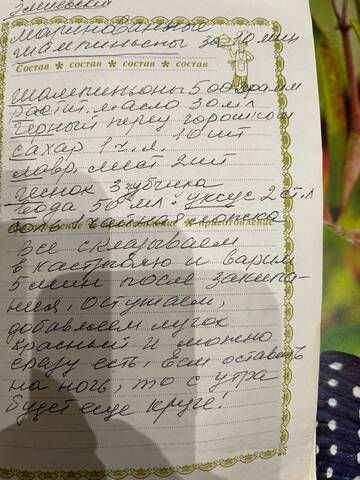 Маринованные
шампиньоны за 10 мин
Состав ✽ состав ✽ состав ✽ состав
Шампиньоны 500 грамм
растит. масло 30 мл
Чёрный перец горошком
10 шт
сахар 1 ч.л.
лавр. лист 2 шт
чеснок 3 зубчика
вода 50 мл. уксус 2 ст.л
соль 1 чайная ложка
приготовление
Все складываем
в кастрюлю и варим
5 мин после закипа-
ния, остужаем,
добавляем лучок
красный и можно
сразу есть, Если оставить
на ночь, то с утра
будет еще круче!